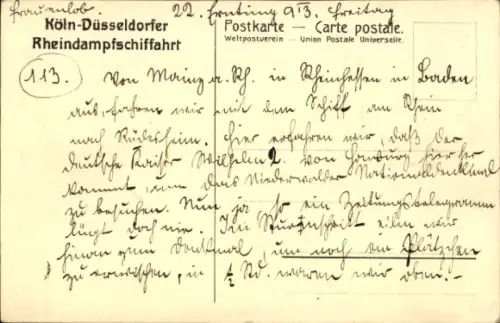 Frauenlob. 22. Ernting 913. Freitag
Köln-Düsseldorfer
Rheindampfschiffahrt
Postkarte — Carte postale.
Weltpostverein — Union Postale Universelle.
113. Von Mainz a. Rh. in Rheinhessen in Baden
aus, fahren wir mit dem Schiff am Rhein
nach Rüdesheim. Hier erfahren wir, daß der
deutsche Kaiser Wilhelm 2. von Homburg hierher
kommt, um das Niederwalder Nationaldenkmal
zu besuchen. Nun ja, so ein Zeitungstelegramm
lügt doch nie. Im Sturmschritt eilen wir
hinan zum Denkmal, um noch ein Plätzchen
zu erwischen, in ½ Sd. waren wir oben.-